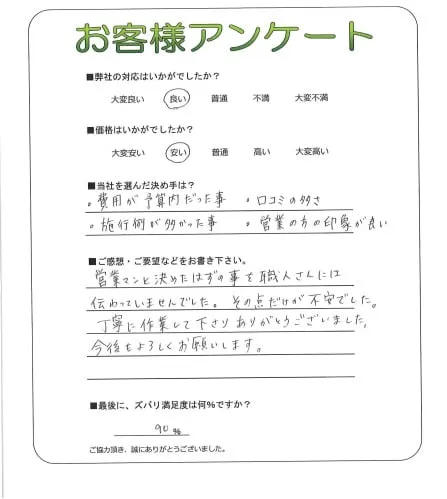 お客様アンケート
■弊社の対応はいかがでしたか？
大変良い 良い 普通 不満 大変不満
■価格はいかがでしたか？
大変安い 安い 普通 高い 大変高い
■当社を選んだ決め手は？
・費用が予算内だった事 ・口コミの多さ
・施行例が多かった事 ・営業の方の印象が良い
■ご感想・ご要望などをお書き下さい。
営業マンと決めたはずの事を職人さんには
伝わっていませんでした。その点だけが不安でした。
丁寧に作業して下さりありがとうございました。
今後もよろしくお願いします。
■最後に、ズバリ満足度は何％ですか？
90 %
ご協力頂き、誠にありがとうございました。